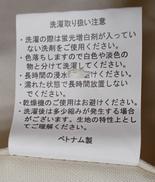 洗濯取り扱い注意
・洗濯の際は蛍光増白剤が入って
いない洗剤をご使用ください。
・色落ちしますので白色や淡色の
物と分けて洗濯してください。
・長時間の浸水
・濡れた状態で長時間放置しない
でください。
・乾燥機のご使用はお避けください。
・洗濯後は多少縮みが発生する場合
がございます。生地の特性上として
ご理解ください。
ベトナム製